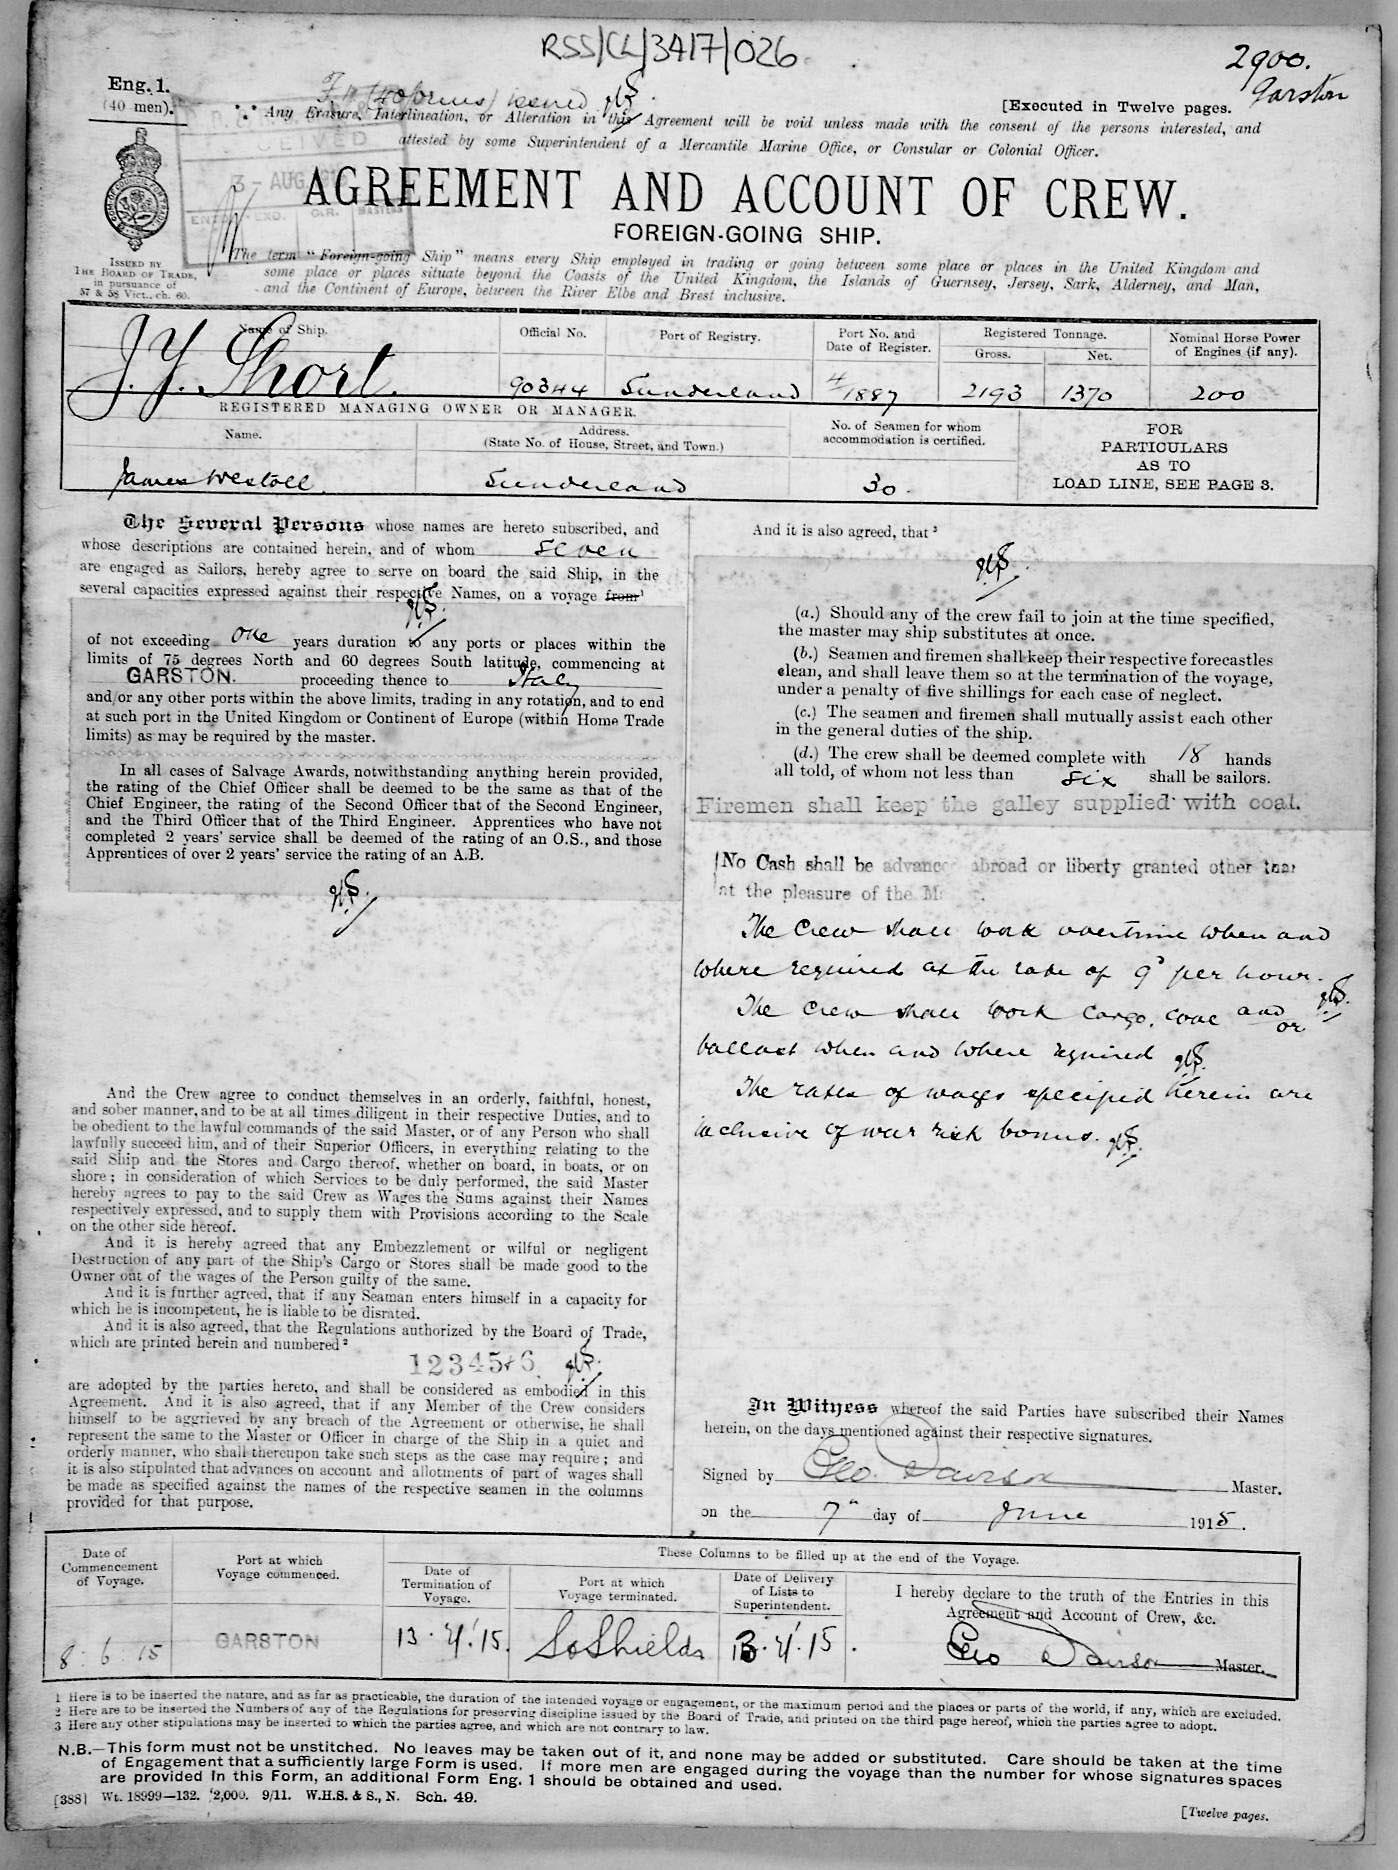 RSS/CL/3417/026
2900.
Garston
Eng. 1.
(40 men).
(40 forms) issued
[Executed in Twelve pages.
Any Erasure, Interlineation, or Alteration in this Agreement will be void unless made with the consent of the persons interested, and
attested by some Superintendent of a Mercantile Marine Office, or Consular or Colonial Officer.
RECEIVED
3 - AUG
AGREEMENT AND ACCOUNT OF CREW.
FOREIGN-GOING SHIP.
ISSUED BY
THE BOARD OF TRADE,
in pursuance of
57 & 58 Vict., ch. 60.
The term "Foreign-going Ship" means every Ship employed in trading or going between some place or places in the United Kingdom and
some place or places situate beyond the Coasts of the United Kingdom, the Islands of Guernsey, Jersey, Sark, Alderney, and Man,
and the Continent of Europe, between the River Elbe and Brest inclusive.
Name of Ship. Official No. Port of Registry. Port No. and Date of Register. Registered Tonnage. Gross. Net. Nominal Horse Power of Engines (if any).
J. Y. Short. 90344 Sunderland 4/1887 2193 1370 200
REGISTERED MANAGING OWNER OR MANAGER.
Name. Address. (State No. of House, Street, and Town.) No. of Seamen for whom accommodation is certified. FOR PARTICULARS AS TO LOAD LINE, SEE PAGE 3.
James Westoll. Sunderland 30.
The Several Persons whose names are hereto subscribed, and
whose descriptions are contained herein, and of whom seven
are engaged as Sailors, hereby agree to serve on board the said Ship, in the
several capacities expressed against their respective Names, on a voyage from¹
of not exceeding one years duration to any ports or places within the
limits of 75 degrees North and 60 degrees South latitude, commencing at
GARSTON. proceeding thence to Italy
and/or any other ports within the above limits, trading in any rotation, and to end
at such port in the United Kingdom or Continent of Europe (within Home Trade
limits) as may be required by the master.
In all cases of Salvage Awards, notwithstanding anything herein provided,
the rating of the Chief Officer shall be deemed to be the same as that of the
Chief Engineer, the rating of the Second Officer that of the Second Engineer,
and the Third Officer that of the Third Engineer. Apprentices who have not
completed 2 years' service shall be deemed of the rating of an O.S., and those
Apprentices of over 2 years' service the rating of an A.B.
And the Crew agree to conduct themselves in an orderly, faithful, honest,
and sober manner, and to be at all times diligent in their respective Duties, and to
be obedient to the lawful commands of the said Master, or of any Person who shall
lawfully succeed him, and of their Superior Officers, in everything relating to the
said Ship and the Stores and Cargo thereof, whether on board, in boats, or on
shore; in consideration of which Services to be duly performed, the said Master
hereby agrees to pay to the said Crew as Wages the Sums against their Names
respectively expressed, and to supply them with Provisions according to the Scale
on the other side hereof.
And it is hereby agreed that any Embezzlement or wilful or negligent
Destruction of any part of the Ship's Cargo or Stores shall be made good to the
Owner out of the wages of the Person guilty of the same.
And it is further agreed, that if any Seaman enters himself in a capacity for
which he is incompetent, he is liable to be disrated.
And it is also agreed, that the Regulations authorized by the Board of Trade,
which are printed herein and numbered²
1 2 3 4 5 & 6.
are adopted by the parties hereto, and shall be considered as embodied in this
Agreement. And it is also agreed, that if any Member of the Crew considers
himself to be aggrieved by any breach of the Agreement or otherwise, he shall
represent the same to the Master or Officer in charge of the Ship in a quiet and
orderly manner, who shall thereupon take such steps as the case may require; and
it is also stipulated that advances on account and allotments of part of wages shall
be made as specified against the names of the respective seamen in the columns
provided for that purpose.
And it is also agreed, that ³
(a.) Should any of the crew fail to join at the time specified,
the master may ship substitutes at once.
(b.) Seamen and firemen shall keep their respective forecastles
clean, and shall leave them so at the termination of the voyage,
under a penalty of five shillings for each case of neglect.
(c.) The seamen and firemen shall mutually assist each other
in the general duties of the ship.
(d.) The crew shall be deemed complete with 18 hands
all told, of whom not less than six shall be sailors.
Firemen shall keep the galley supplied with coal.
No Cash shall be advanced abroad or liberty granted other than
at the pleasure of the Ma
The Crew shall work overtime when and
where required at the rate of 9d per hour.
The Crew shall work cargo, coal and or
ballast when and where required
The rates of wages specified herein are
inclusive of war risk bonus.
In Witness whereof the said Parties have subscribed their Names
herein, on the days mentioned against their respective signatures.
Signed by Geo. Davison Master.
on the 7th day of June 1915.
Date of Commencement of Voyage. Port at which Voyage commenced. These Columns to be filled up at the end of the Voyage.
Date of Termination of Voyage. Port at which Voyage terminated. Date of Delivery of Lists to Superintendent. I hereby declare to the truth of the Entries in this Agreement and Account of Crew, &c.
8 : 6 : 15 GARSTON 13 . 15. So Shields 13 . 15. Geo Davison Master.
1 Here is to be inserted the nature, and as far as practicable, the duration of the intended voyage or engagement, or the maximum period and the places or parts of the world, if any, which are excluded.
2 Here are to be inserted the Numbers of any of the Regulations for preserving discipline issued by the Board of Trade, and printed on the third page hereof, which the parties agree to adopt.
3 Here any other stipulations may be inserted to which the parties agree, and which are not contrary to law.
N.B.—This form must not be unstitched. No leaves may be taken out of it, and none may be added or substituted. Care should be taken at the time
of Engagement that a sufficiently large Form is used. If more men are engaged during the voyage than the number for whose signatures spaces
are provided in this Form, an additional Form Eng. 1 should be obtained and used.
[388] Wt. 18999—132. 2,000. 9/11. W.H.S. & S., N. Sch. 49.
[Twelve pages.